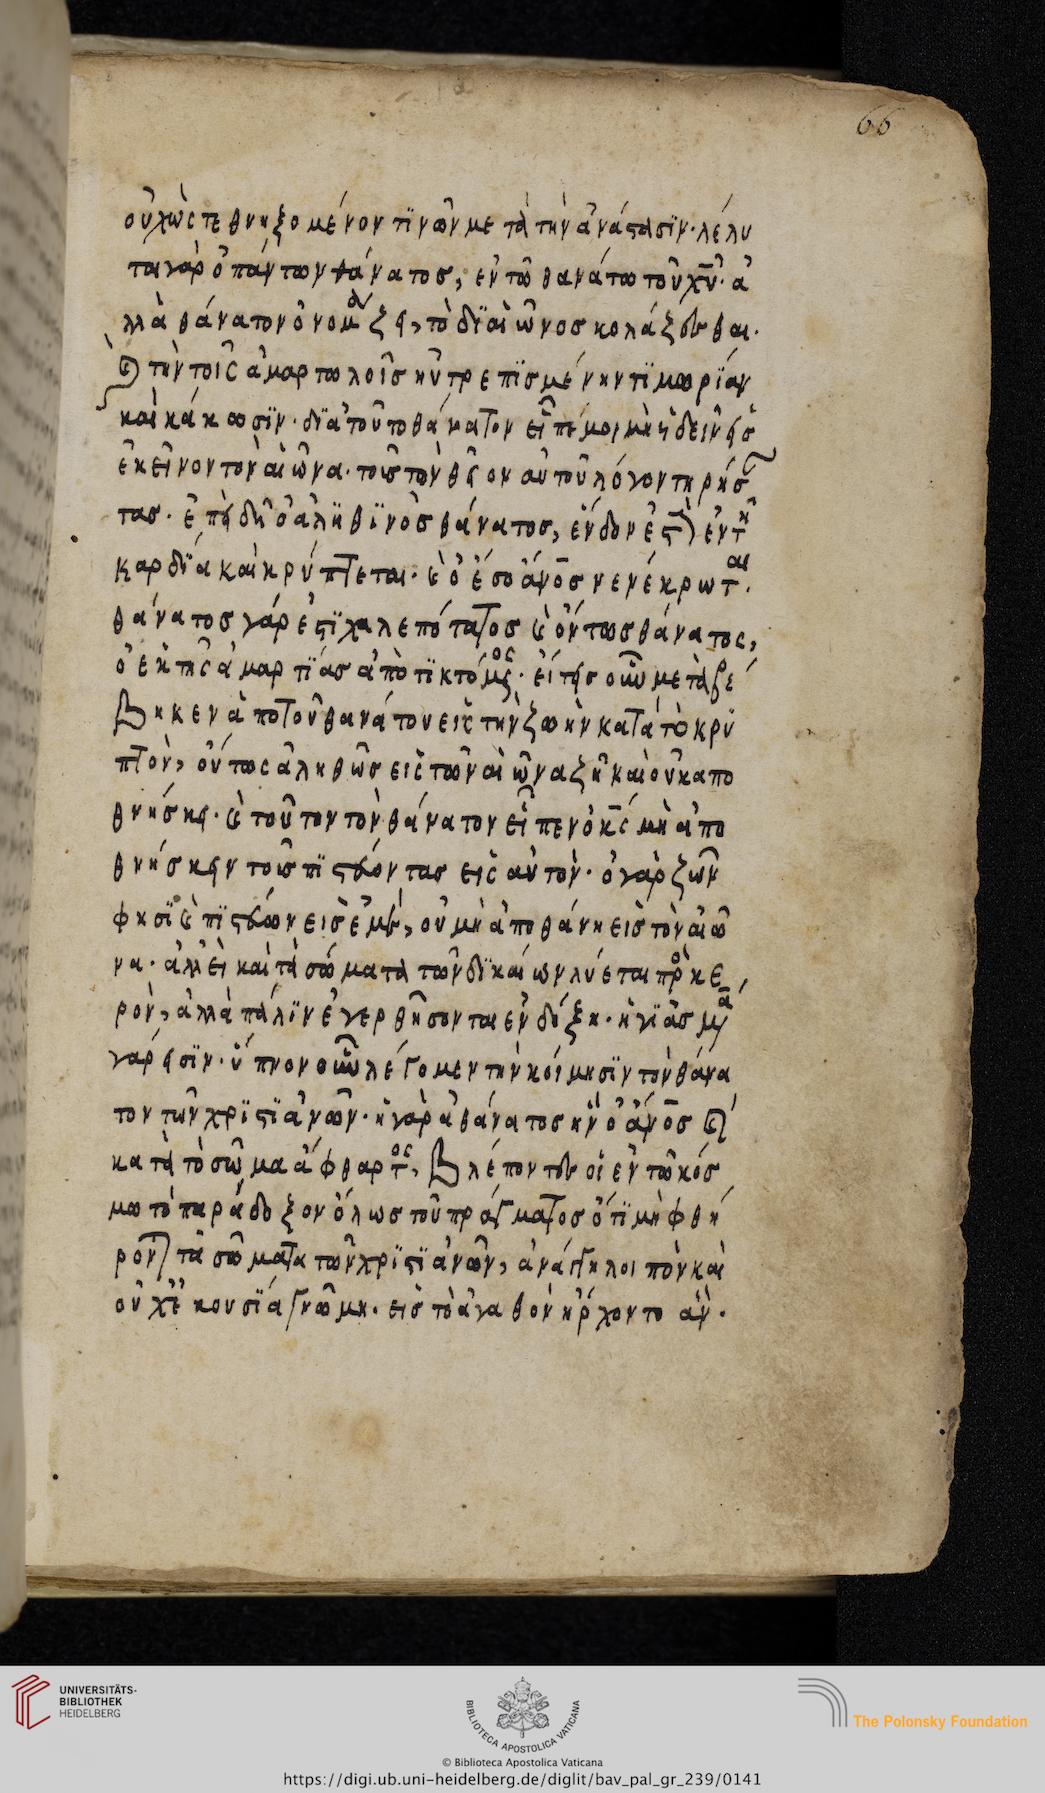 66
οὐχ ὡς τεθνηξομένον τϊνῶν μετὰ τὴν ἀνάστασϊν· λέλυ
ται γὰρ ὁ πάντων θάνατος, ἐν τῶ θανάτω τοῦ χῡ· ἀ
λλὰ θάνατον ὀνομάζει, τὸ δϊαιῶνος κολάζεσθαι·
καὶ τὴν τοῖς ἁμαρτωλοῖς ηὐτρεπϊσμένην τϊμωρϊαν
καὶ κάκωσϊν· δϊὰ τοῦτο θάνατον εἶπέ μοι μὴ ἰδεῖν εἰς
ἐκεῖνον τὸν αἰῶνα· τοὺς τὸν θεῖον αὐτοῦ λόγον τηρήσ
τας· ἐπειδὴ ὁ ἀληθϊνὸς θάνατος, ἔνδον ἐστὶν ἐν τῆ
καρδΐα καὶ κρύπτεται· καὶ ὁ ἔσω ἄνος νενέκρωται·
θάνατος γάρ ἐστϊ χαλεπότατος καὶ ὄντως θάνατος,
ὁ ἐκ τῆς ἁμαρτΐας ἀποτϊκτόμενος· εἴ τις οὖν μεταβέ
βηκεν ἀπὸ τοῦ θανάτου εἰς τὴν ζωὴν κατὰ τὸ κρυ
πτὸν, οὕτως ἀληθῶς εἰς τῶν αἰῶνα ζῆ καὶ οὐκ απο
θνήσκει· καὶ τοῦτον τὸν θάνατον εἶπεν ὁ κ̄ς μὴ ἀπο
θνήσκειν τοὺς πϊστεύοντας εἰς αὐτὸν· ὁ γὰρ ζῶν
φησϊ καὶ πϊστεύων εἰς ἐμὲ, οὐ μὴ ἀποθάνη εἰς τὸν αἰῶ
να· ἀλλ εἰ καὶ τὰ σώματα τῶν δϊκαίων λύεται πρὸς κε
ρὸν, ἀλλὰ πάλϊν ἐγερθήσονται ἐν δόξη· ἡγϊασμένα
γάρ εἰσϊν· ὕπνον οὖν λέγομεν τὴν κοίμησϊν τὸν θάνα
τον τῶν χρϊστϊανῶν· εἰ γὰρ ἀθάνατος ἦν ὁ ἄνος καὶ
κατὰ τὸ σῶμα ἄφθαρτος, βλέποντες οἱ ἐν τῶ κόσ
μω τὸ παράδοξον ὅλως τοῦ πράγματος ὅτϊ μὴ φθεί
ρονται τὰ σώματα τῶν χρϊστϊανῶν, ἀνάγκη λοιπὸν καὶ
οὐχ ἑκουσΐα γνώμη· εἰς τὸ ἀγαθὸν ἤρχοντο ἄν·
UNIVERSITÄTS-
BIBLIOTHEK
HEIDELBERG
BIBLIOTECA APOSTOLICA VATICANA
The Polonsky Foundation
© Biblioteca Apostolica Vaticana
https://digi.ub.uni-heidelberg.de/diglit/bav_pal_gr_239/0141